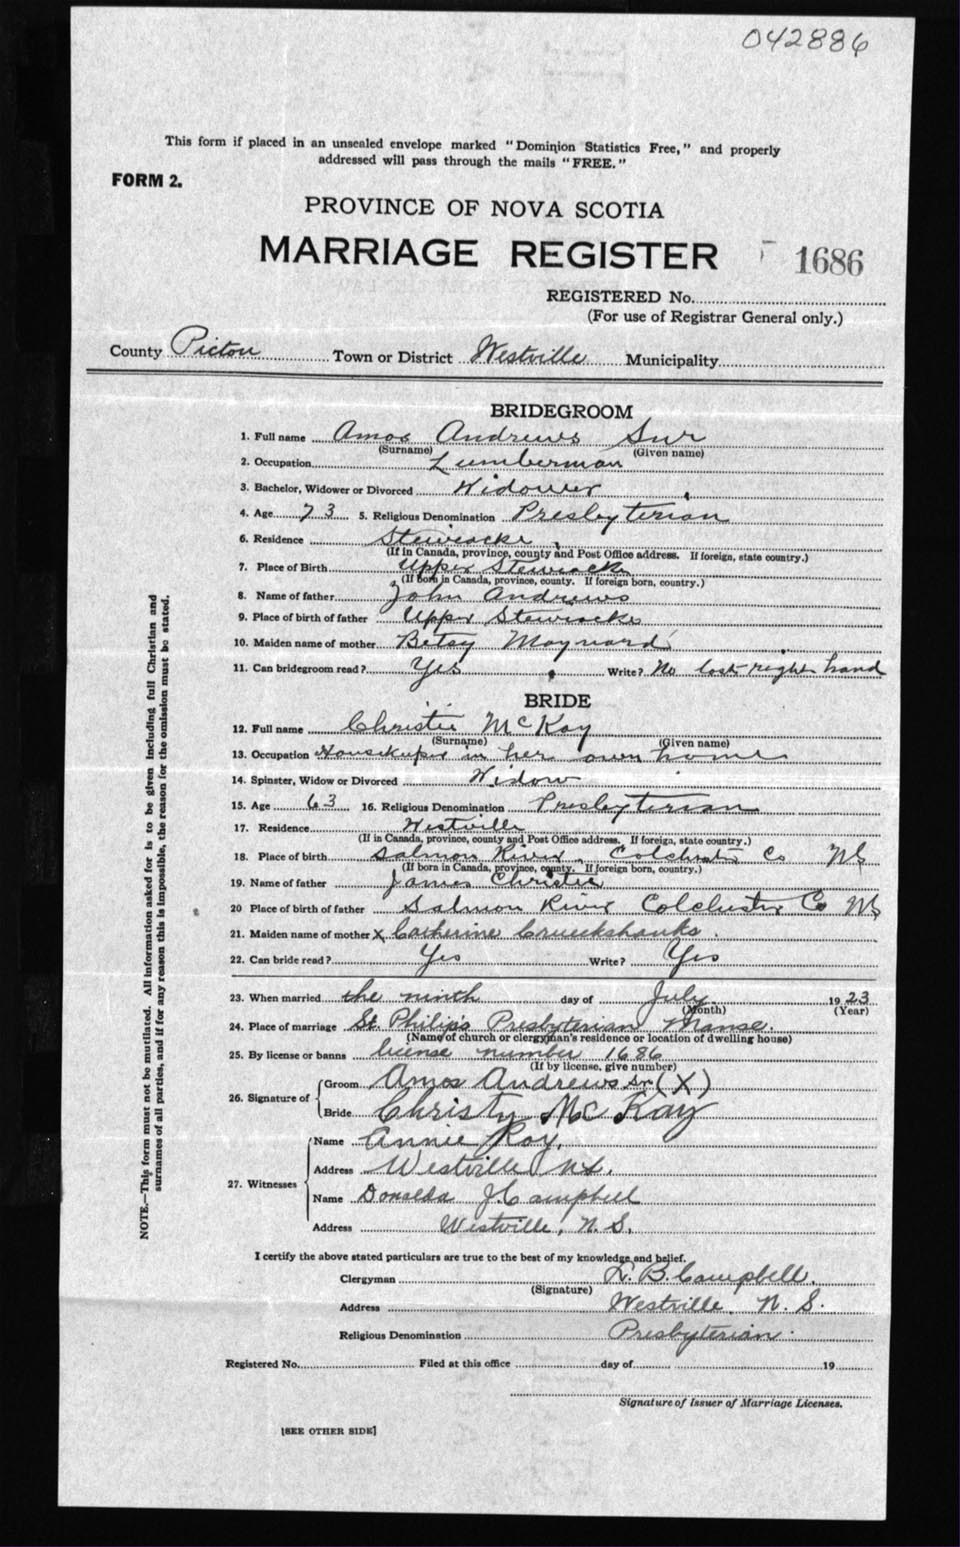 042886
This form if placed in an unsealed envelope marked "Dominion Statistics Free," and properly
addressed will pass through the mails "FREE."
FORM 2.
PROVINCE OF NOVA SCOTIA
MARRIAGE REGISTER 1686
REGISTERED No.
(For use of Registrar General only.)
County Pictou Town or District Westville Municipality
BRIDEGROOM
1. Full name Amos Andrews Snr
(Surname) (Given name)
2. Occupation Lumberman
3. Bachelor, Widower or Divorced Widower
4. Age 73 5. Religious Denomination Presbyterian
6. Residence Stewiacke
(If in Canada, province, county and Post Office address. If foreign, state country.)
7. Place of Birth Upper Stewiacke
(If Born in Canada, province, county. If foreign born, country.)
8. Name of father John Andrews
9. Place of birth of father Upper Stewiacke
10. Maiden name of mother Betsy Maynard
11. Can bridegroom read? Yes Write? No lost right hand
BRIDE
12. Full name Christie McKay
(Surname) (Given name)
13. Occupation Housekeeper in her own home
14. Spinster, Widow or Divorced Widow
15. Age 63 16. Religious Denomination Presbyterian
17. Residence Westville
(If in Canada, province, county and Post Office address. If foreign, state country.)
18. Place of birth Salmon River, Colchester Co NS
(If born in Canada, province, county. If foreign born, country.)
19. Name of father James Christie
20 Place of birth of father Salmon River Colchester Co NS
21. Maiden name of mother X Catherine Crueckshanks.
22. Can bride read? Yes Write? Yes
23. When married the ninth day of July 1923
(Month) (Year)
24. Place of marriage St Philip's Presbyterian Manse.
(Name of church or clergyman's residence or location of dwelling house)
25. By license or banns license number 1686
(If by license, give number)
26. Signature of
Groom Amos Andrews Sr (X)
Bride Christy McKay
27. Witnesses
Name Annie Roy,
Address Westville N.S.
Name Donalda J. Campbell
Address Westville, N.S.
I certify the above stated particulars are true to the best of my knowledge and belief.
Clergyman L. B. Campbell.
(Signature)
Address Westville, N.S.
Religious Denomination Presbyterian.
Registered No. Filed at this office day of 19
Signature of Issuer of Marriage Licenses.
[SEE OTHER SIDE]
NOTE.—This form must not be mutilated. All information asked for is to be given including full Christian and
surnames of all parties, and if for any reason this is impossible, the reason for the omission must be stated.